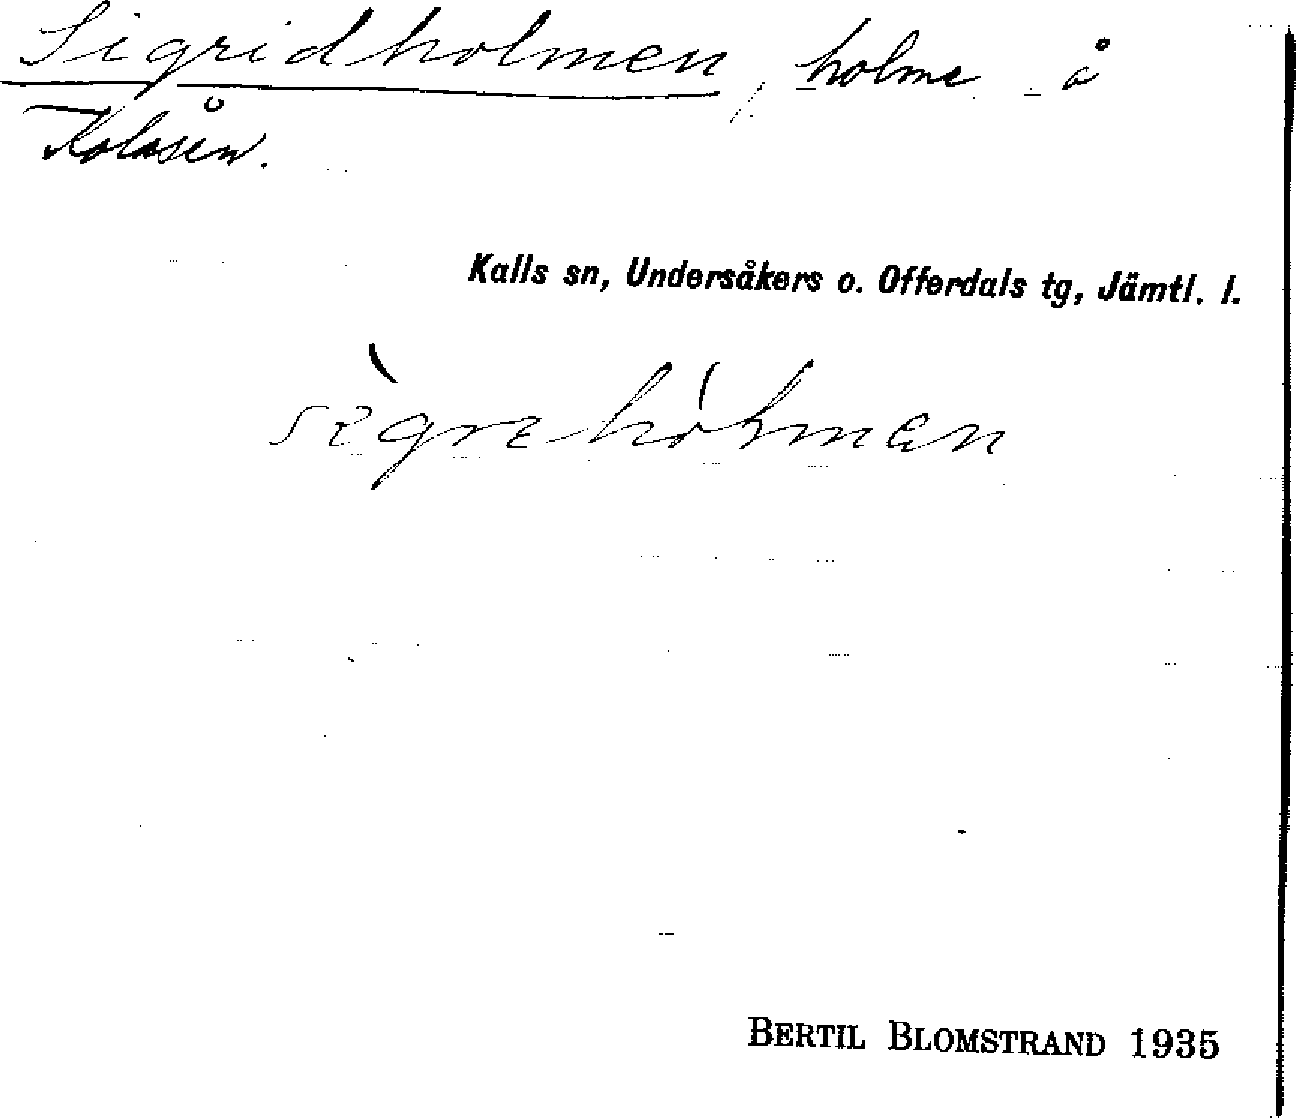 Sigridholmen, holme å
Kolåsen.
Kalls sn, Undersåkers o. Offerdals tg, Jämtl. l.
BERTIL BLOMSTRAND 1935